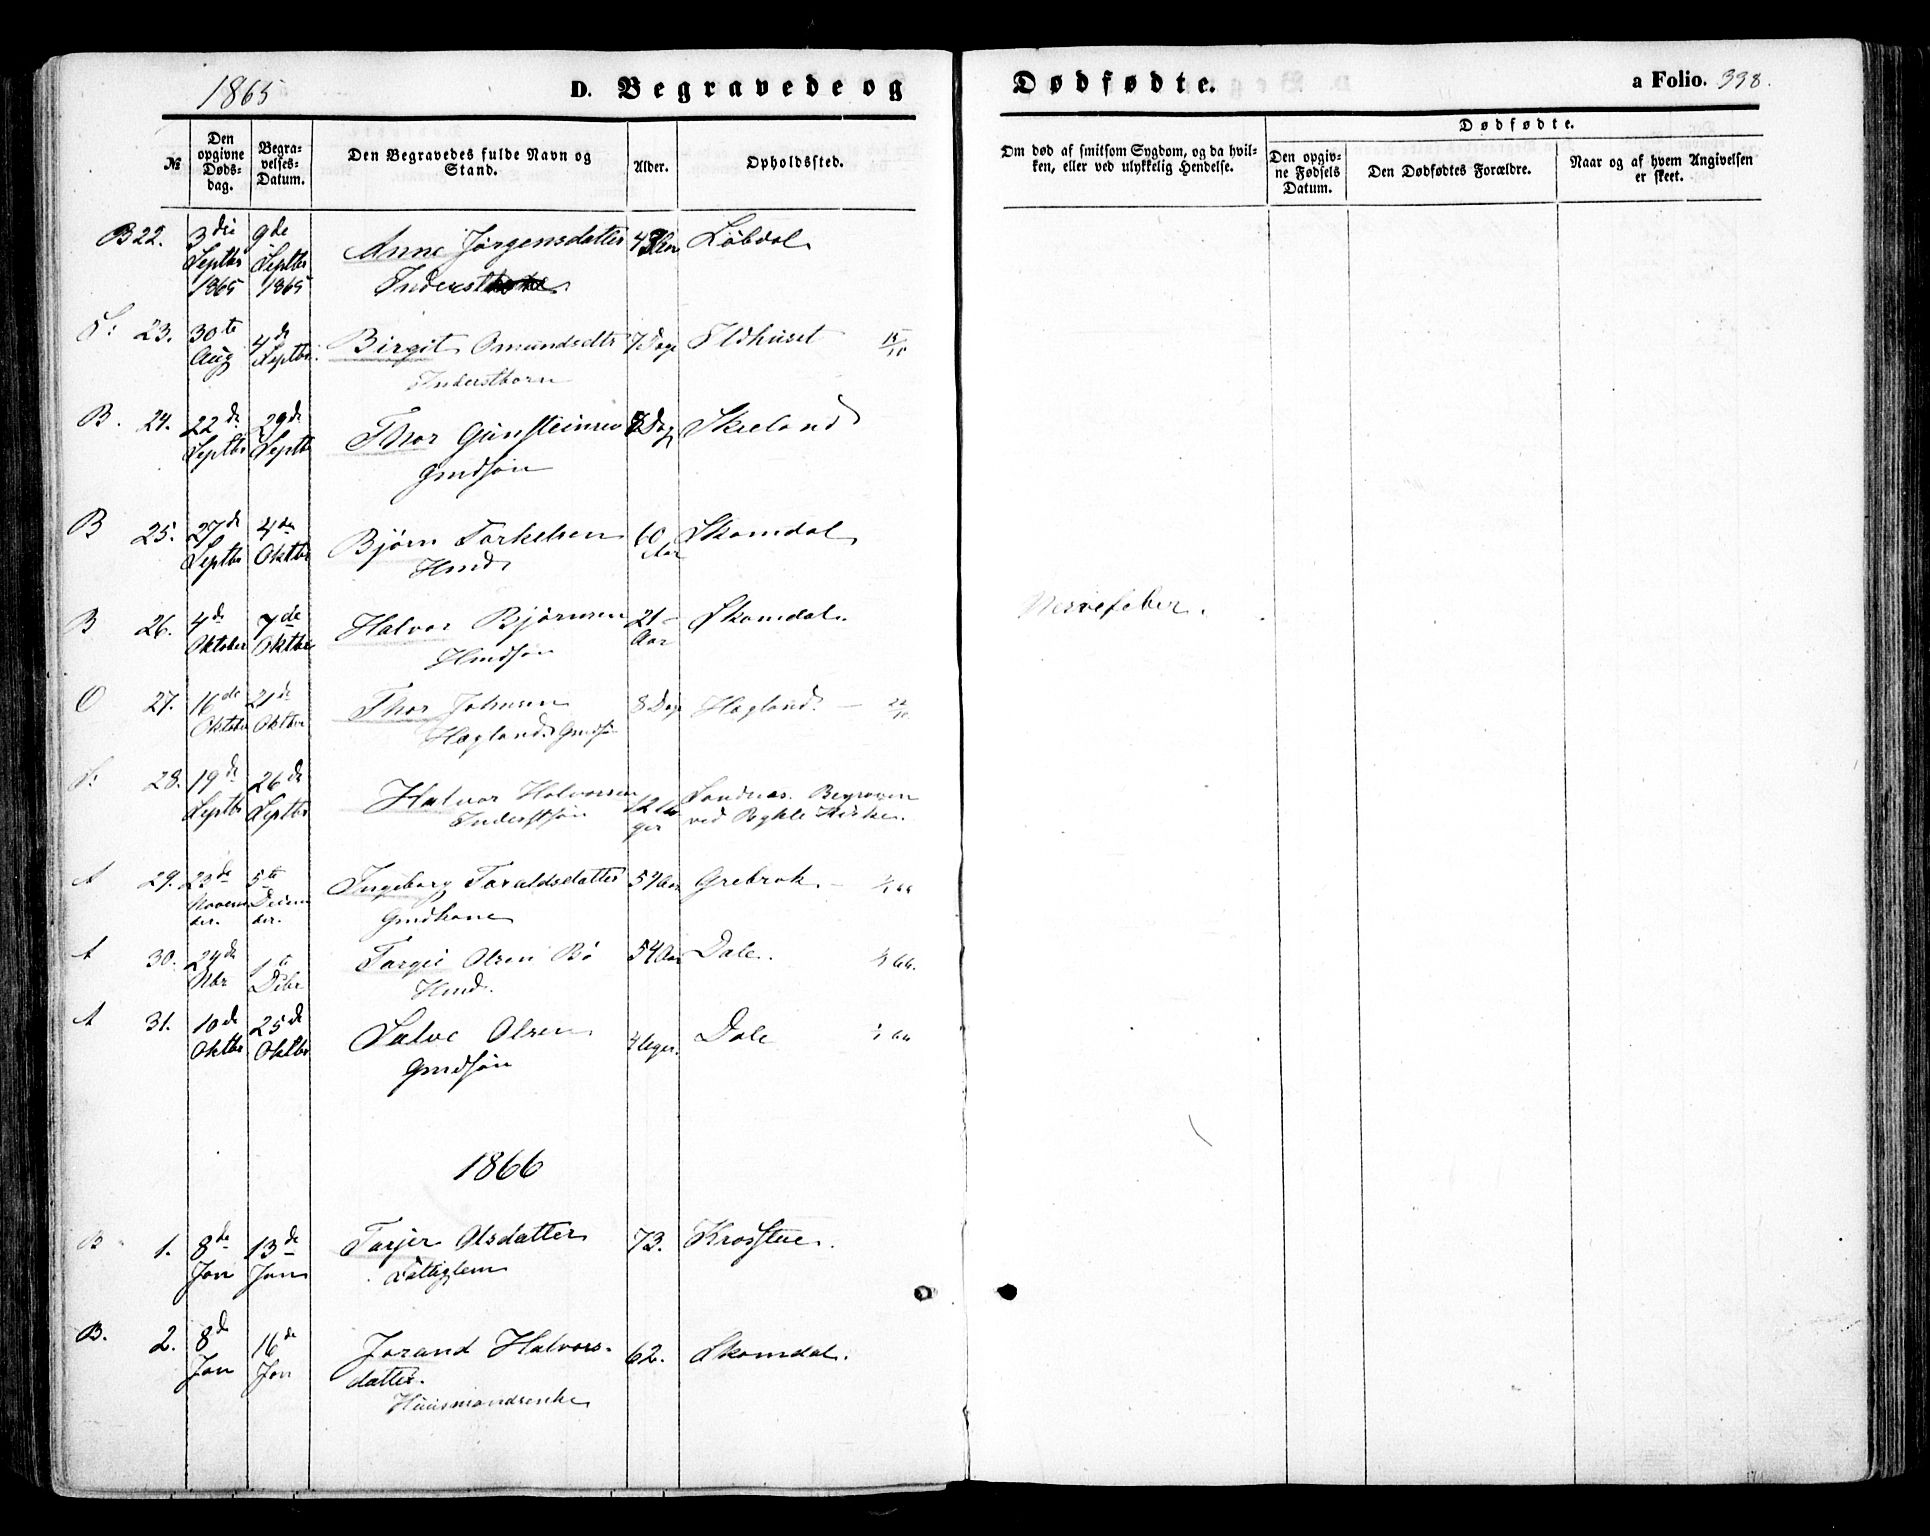 1865 D. Begravede og Dødfødte. a Folio. 398.
№ Den opgivne Dødsdag. Begravelses-Datum. Den Begravedes fulde Navn og Stand. Alder. Opholdssted. Om død af smitsom Sygdom, og da hvilken, eller ved ulykkelig Hendelse. Dødfødte.
Den opgivne Fødsels Datum. Den Dødfødtes Forældre. Naar og af hvem Angivelsen er skeet.
B 22. 3die 9de Anne Jørgensdatter Aar Løbdal
Septbr Septbr Inderst
1865 1865
23. 30te 4de Birgit Omundsdttr 7 Dage Ildhuset
Aug Septbr. Inderstbarn
B. 24. 22de 29de Thor Gunsteinsen Dage Skeeland
Septbr Septbr Gmdsøn
B 25. 27de 4de Bjørn Torkelsen 60 Aar Skomdal
Septbr Oktbr Hmd
B 26. 4de 7de Halvor Bjørnsen 21 Aar Skomdal. Nervefeber.
Oktober Oktbr Hmdsøn
O 27. 16de 21de Thor Johnsen 8 Dage Hægland. –
Oktober Oktbr Hæglands Gmdsø
28. 19de 26de Halvor Halvorsen 12 Uger Sandnæs. Begraven
Septbr Septbr Inderstsøn ved Bykle Kirke.
A 29. 23de 5te Ingeborg Taraldsdatter Aar Grebrok –
Novem Decem Gmdkone
ber. ber.
A 30. 24de 1te Targei Olsen Bø 54 Aar Dale.
Nbr Debr Hmd.
A 31. 10de 25de Salve Olsen 4 Uger. Dale
Oktbr Oktbr Gmdsøn
1866
B 1. 8de 13de Tarjer Olsdatter 73. Krosstue.
Jan Jan Fattiglem
B. 2. 8de 16de Jorand Halvors- 62. Skomdal.
Jan Jan datter.
Huusmandsenke